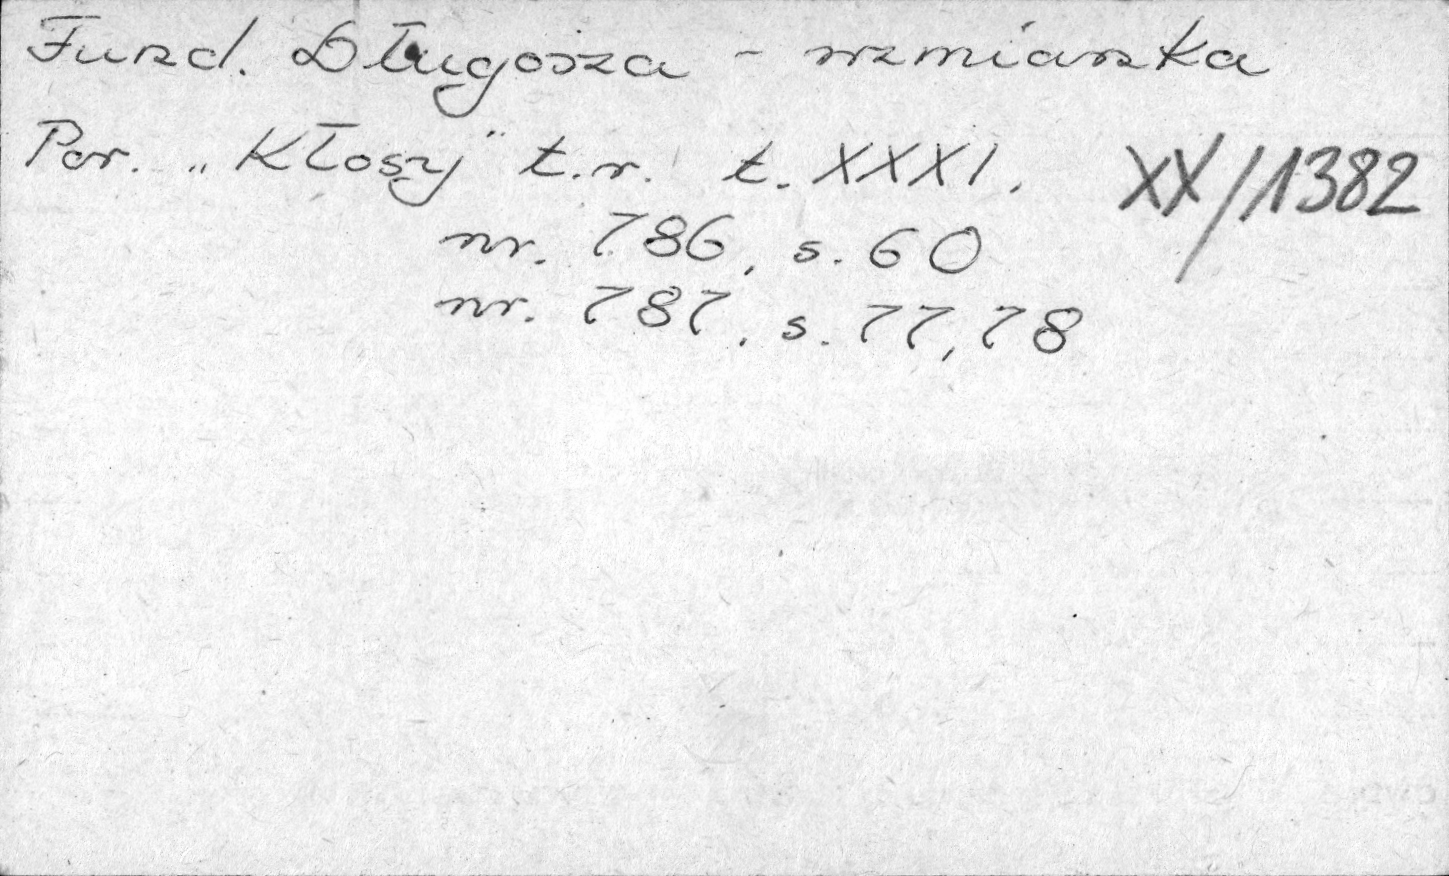 Fund. Długosza - wzmianka
Por. „Kłosy" t.r. t. XXXI.
XX/1382
nr. 786, s. 60
nr. 787, s. 77, 78